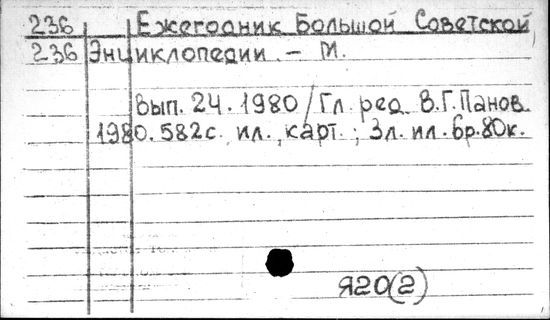 236 Ежегодник Большой Советской
236 Энциклопедии. – М.
Вып. 24. 1980 / Гл. ред. В.Г. Панов.
1980. 582с. ил., карт.; 3л. ил. 6р.80к.
Я20(2)